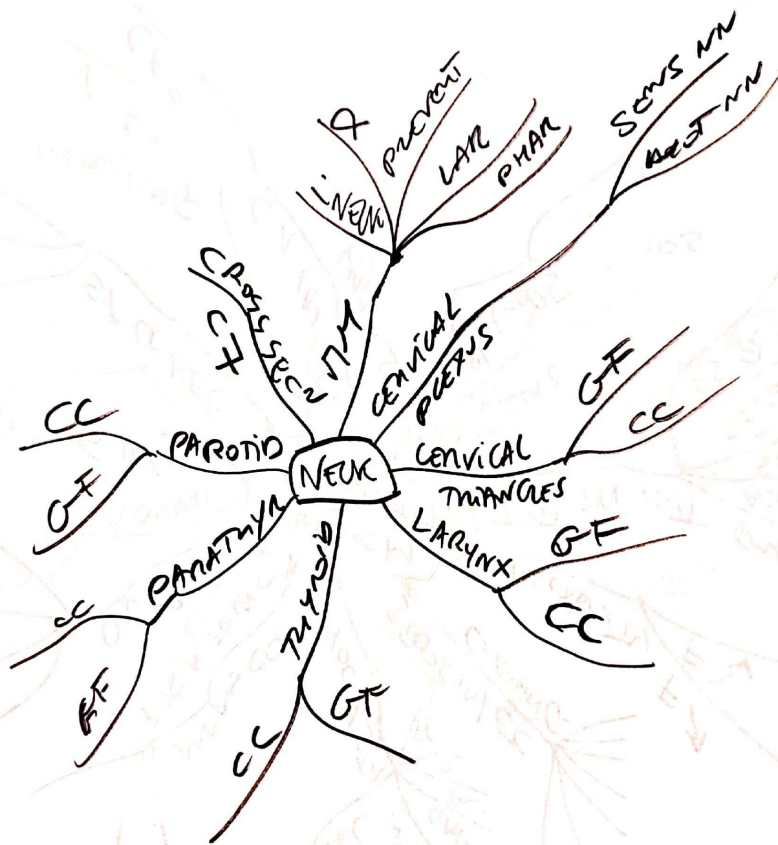 NECK
MM
iNECK
PREVERT
LAR
PHAR
CERVICAL
PLEXUS
SENS NN
MOT NN
CERVICAL
TRIANGLES
GF
CC
LARYNX
GF
CC
THYROID
GF
CC
PARATHYR
CC
GF
PAROTID
CC
GF
CROSS SEC